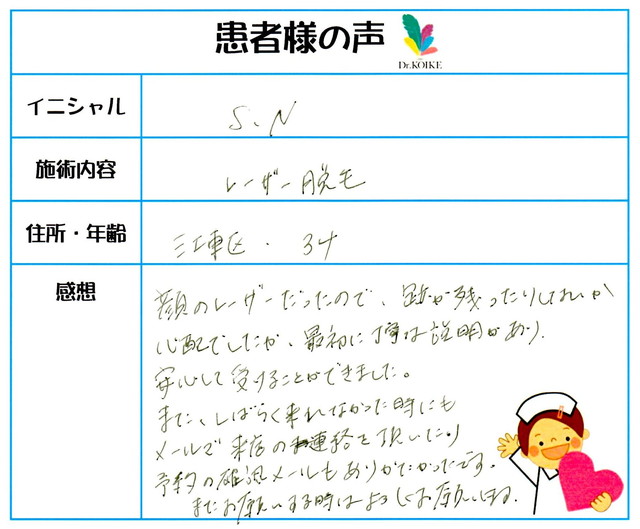 患者様の声
Dr.KOIKE
イニシャル
S.N
施術内容
レーザー脱毛
住所・年齢
江東区・34
感想
顔のレーザーだったので、跡が残ったりしないか
心配でしたが、最初に丁寧な説明があり、
安心して受けることができました。
また、しばらく来れなかった時にも
メールで来店の連絡を頂いたり
予約の確認メールもありがたかったです。
またお願いする時はよろしくお願いします。